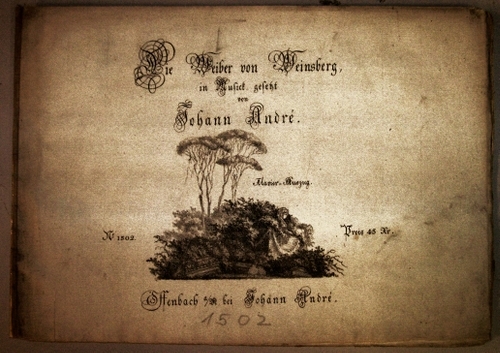 Die Weiber von Weinsberg,
in Musick gesetzt
von
Johann André.
Klavier-Auszug.
N 1502.
Preis 45 Xr.
Offenbach a/M bei Johann André.
1502